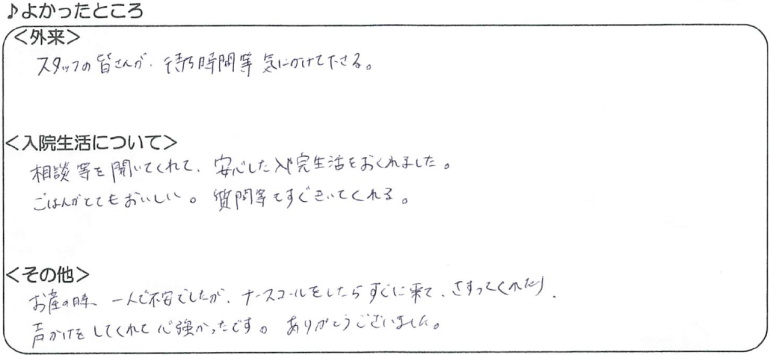 ♪よかったところ
＜外来＞
スタッフの皆さんが、待ち時間等気にかけて下さる。
＜入院生活について＞
相談等を聞いてくれて、安心した入院生活をおくれました。
ごはんがとてもおいしい。質問等もすぐきいてくれる。
＜その他＞
お産の時、一人で不安でしたが、ナースコールをしたらすぐに来て、さすってくれたり、
声かけをしてくれて心強かったです。ありがとうございました。